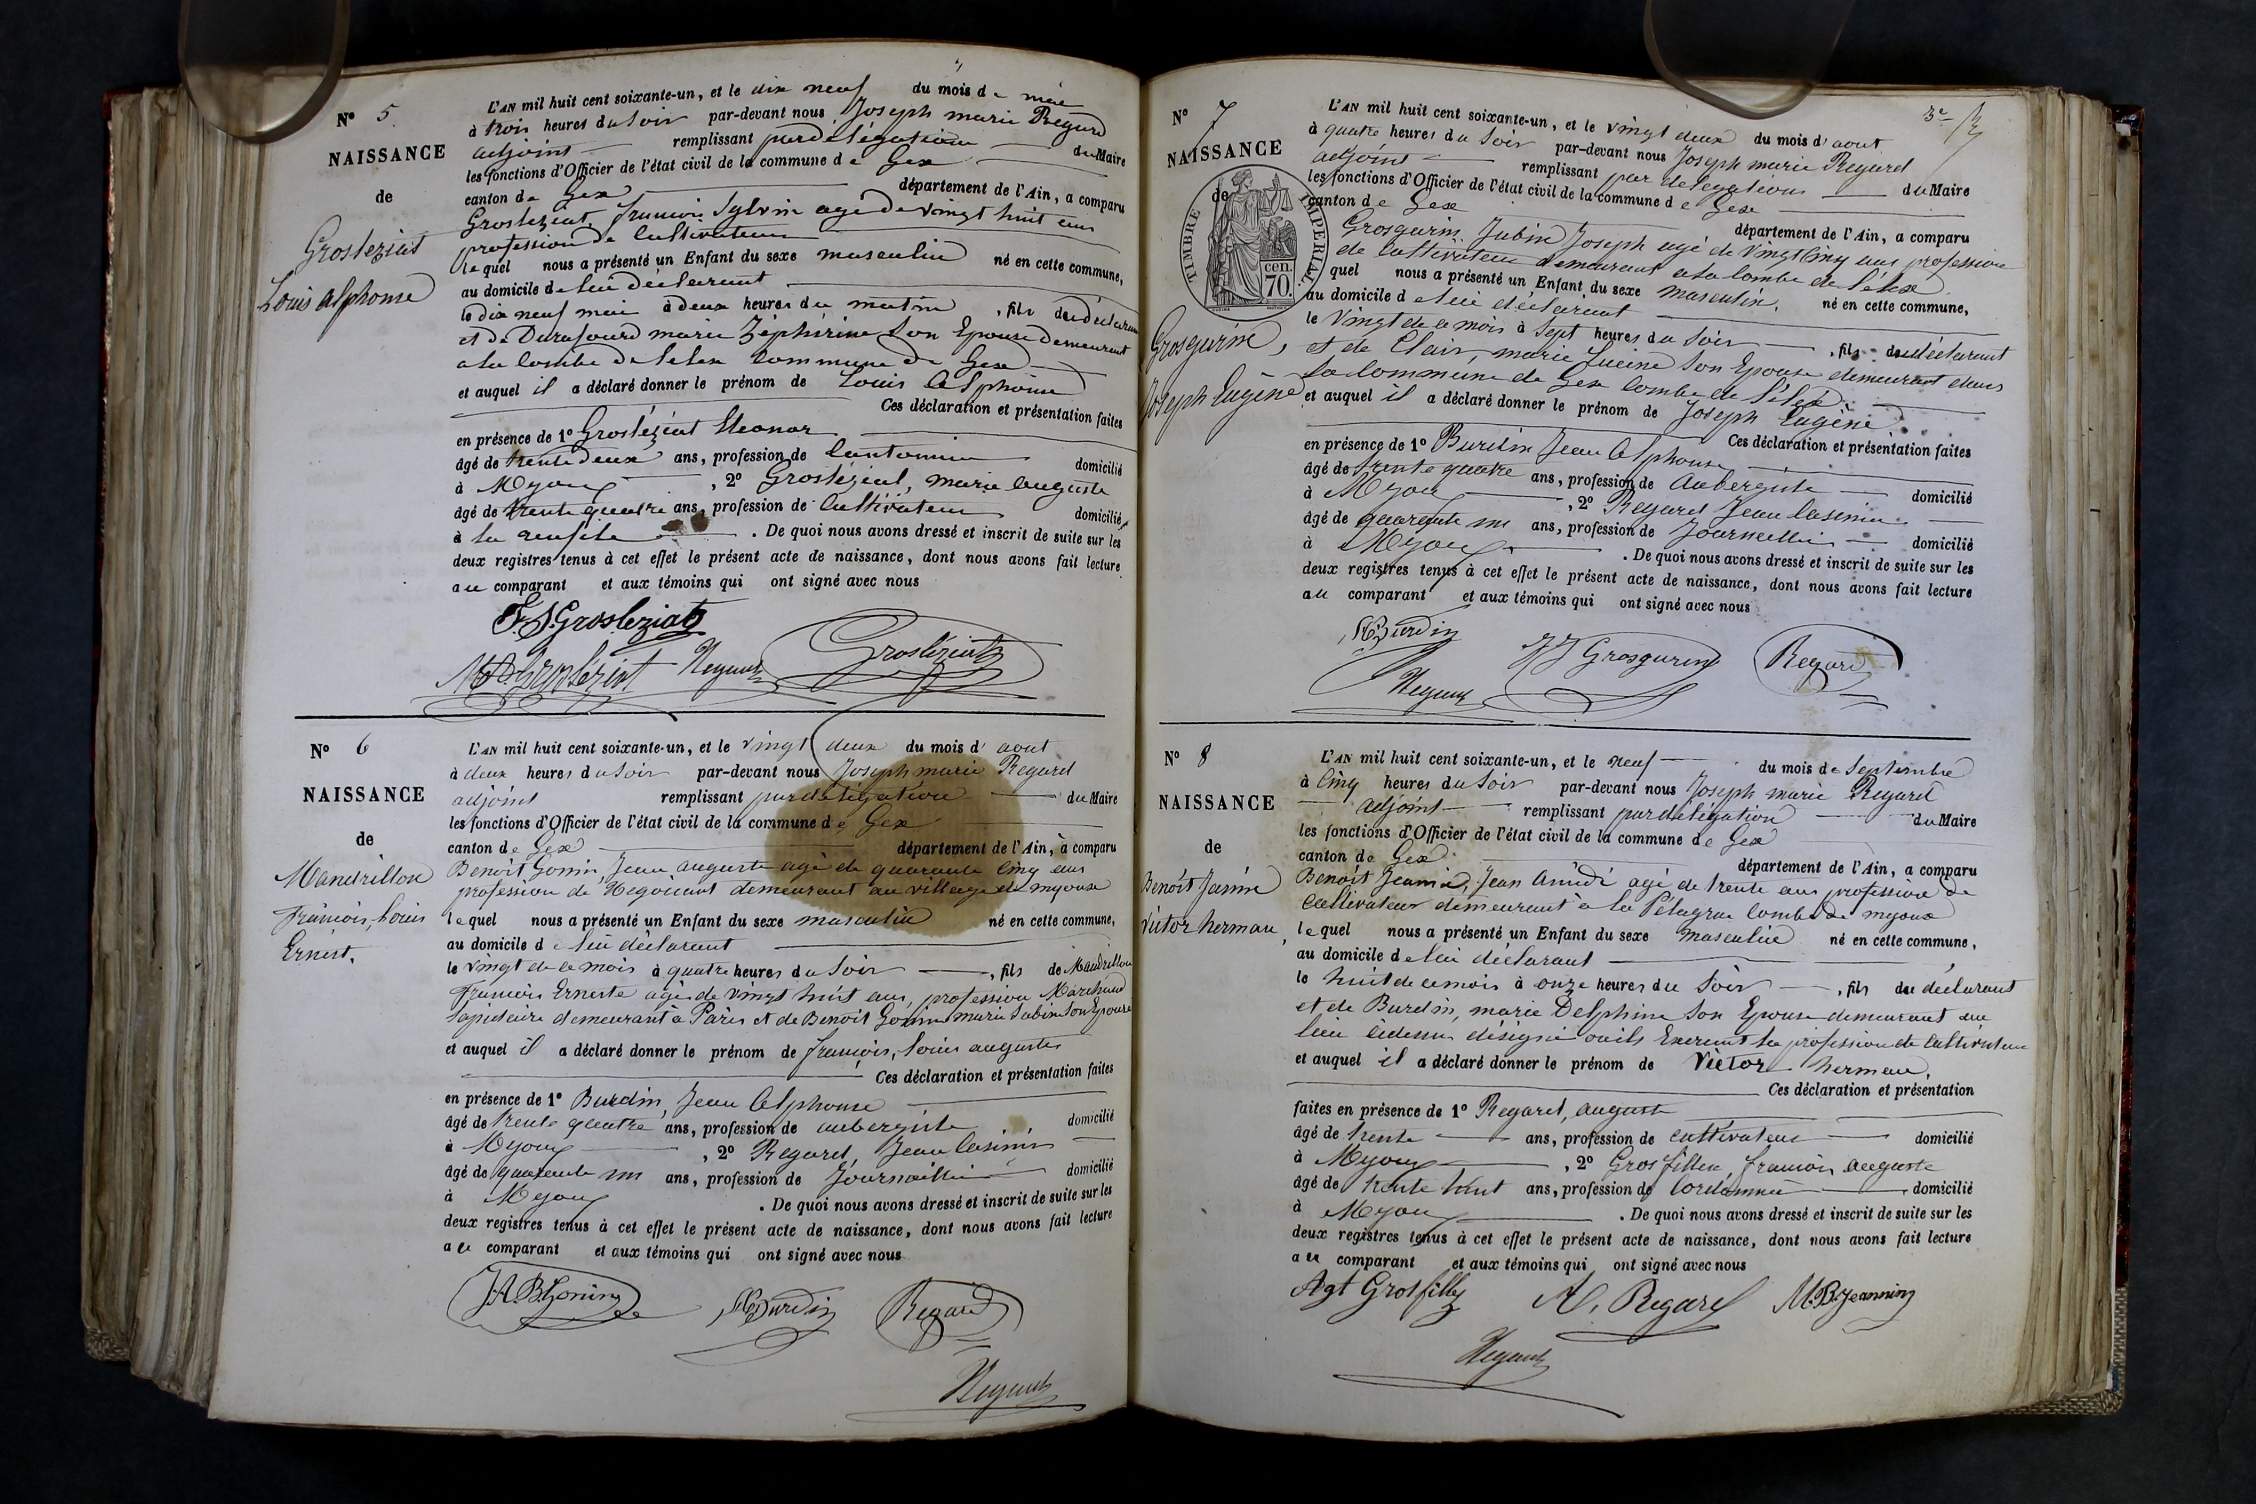 N° 5
NAISSANCE
de
Groslezиat
Louis Alphonse
L'AN mil huit cent soixante-un, et le dix neuf du mois de mai
à trois heures du Soir par-devant nous Joseph marie Regard
adjoint remplissant par délégation du Maire
les fonctions d'Officier de l'état civil de la commune de Gex
canton de Gex département de l'Ain, a comparu
Grosleziat, françois Sylvin agé de vingt huit ans
profession de Cultivateur
lequel nous a présenté un Enfant du sexe masculin né en cette commune,
au domicile de lui déclarant
le dix neuf mai à deux heures du matin, fils du déclarant
et de Durafourd marie Zéphirine Son Epouse demeurant
a la Combe de lelex Commune de Gex
et auquel il a déclaré donner le prénom de Louis Alphonse
Ces déclaration et présentation faites
en présence de 1° Grosléziat Eleonor
âgé de trente deux ans, profession de Cantonnier domicilié
à Myoux, 2° Grosléziat, marie auguste
âgé de trente quatre ans, profession de Cultivateur domicilié
à la. De quoi nous avons dressé et inscrit de suite sur les
deux registres tenus à cet effet le présent acte de naissance, dont nous avons fait lecture
au comparant et aux témoins qui ont signé avec nous
F. S. Grosleziat
M A Grosléziat Grosléziat
N° 6
NAISSANCE
de
Mandrillon
François, Louis
Ernest.
L'AN mil huit cent soixante-un, et le vingt deux du mois d'aout
à deux heures du Soir par-devant nous Joseph marie Regard
adjoint remplissant par délégation du Maire
les fonctions d'Officier de l'état civil de la commune de Gex
canton de Gex département de l'Ain, a comparu
Benoit Gonin, Jean auguste agé de quarante Cinq ans
profession de Negociant demeurant au village de myoux
lequel nous a présenté un Enfant du sexe masculin né en cette commune,
au domicile de lui déclarant
le vingt de ce mois à quatre heures du Soir, fils de Mandrillon
François Erneste agé de vingt huit ans, profession Marchand
lapidaire demeurant a Paris et de Benoit Gonin marie Sabine Son Epouse
et auquel il a déclaré donner le prénom de françois, Louis auguste
Ces déclaration et présentation faites
en présence de 1° Burdin, Jean Alphonse
âgé de trente quatre ans, profession de aubergiste domicilié
à Myoux, 2° Regard, Jean Casimir
âgé de quarante un ans, profession de Journallier domicilié
à Myoux. De quoi nous avons dressé et inscrit de suite sur les
deux registres tenus à cet effet le présent acte de naissance, dont nous avons fait lecture
au comparant et aux témoins qui ont signé avec nous
J. A. B. Gonin A Burdin Regard
N° 7
NAISSANCE
de
Grosgurin,
Joseph Eugène
TIMBRE IMPERIAL
cen. 70.
3e
L'AN mil huit cent soixante-un, et le vingt deux du mois d'aout
à quatre heures du Soir par-devant nous Joseph marie Regard
adjoint remplissant par délégation du Maire
les fonctions d'Officier de l'état civil de la commune de Gex
canton de Gex département de l'Ain, a comparu
Grosgurin, Jubin Joseph agé de vingt Cinq ans profession
de Cultivateur demeurant a la Combe de lélex
quel nous a présenté un Enfant du sexe masculin. né en cette commune,
au domicile de lui déclarant
le vingt de ce mois à Sept heures du Soir, fils du déclarant
et de Clair, marie Lucine Son Epouse demeurant dans
la Commune de Gex Combe de lélex
et auquel il a déclaré donner le prénom de Joseph Eugène
Ces déclaration et présentation faites
en présence de 1° Burdin Jean Alphonse
âgé de trente quatre ans, profession de Aubergiste domicilié
à Myoux, 2° Regard Jean Casimir
âgé de quarante un ans, profession de Journallier domicilié
à Myoux. De quoi nous avons dressé et inscrit de suite sur les
deux registres tenus à cet effet le présent acte de naissance, dont nous avons fait lecture
au comparant et aux témoins qui ont signé avec nous
A Burdin J J Grosgurin Regard
N° 8
NAISSANCE
de
Benoit Janin
Victor herman,
L'AN mil huit cent soixante-un, et le neuf du mois de Septembre
à Cinq heures du Soir par-devant nous Joseph marie Regard
adjoint remplissant par délégation du Maire
les fonctions d'Officier de l'état civil de la commune de Gex
canton de Gex département de l'Ain, a comparu
Benoit Jeannin, Jean Amédé agé de trente ans profession de
Cultivateur demeurant à la Combe de myoux
lequel nous a présenté un Enfant du sexe masculin né en cette commune,
au domicile de lui déclarant
le huit de ce mois à onze heures du Soir, fils du déclarant
et de Burdin, marie Delphine Son Epouse demeurant au
lieu cidessus désigné ou ils Exercent la profession de Cultivateur
et auquel il a déclaré donner le prénom de Victor herman,
Ces déclaration et présentation
faites en présence de 1° Regard, auguste
âgé de trente ans, profession de cultivateur domicilié
à Myoux, 2° Grosfilley, françois auguste
âgé de trente huit ans, profession de Cordonnier domicilié
à Myoux. De quoi nous avons dressé et inscrit de suite sur les
deux registres tenus à cet effet le présent acte de naissance, dont nous avons fait lecture
au comparant et aux témoins qui ont signé avec nous
Agt Grosfilley A. Regard M. B. Jeannin